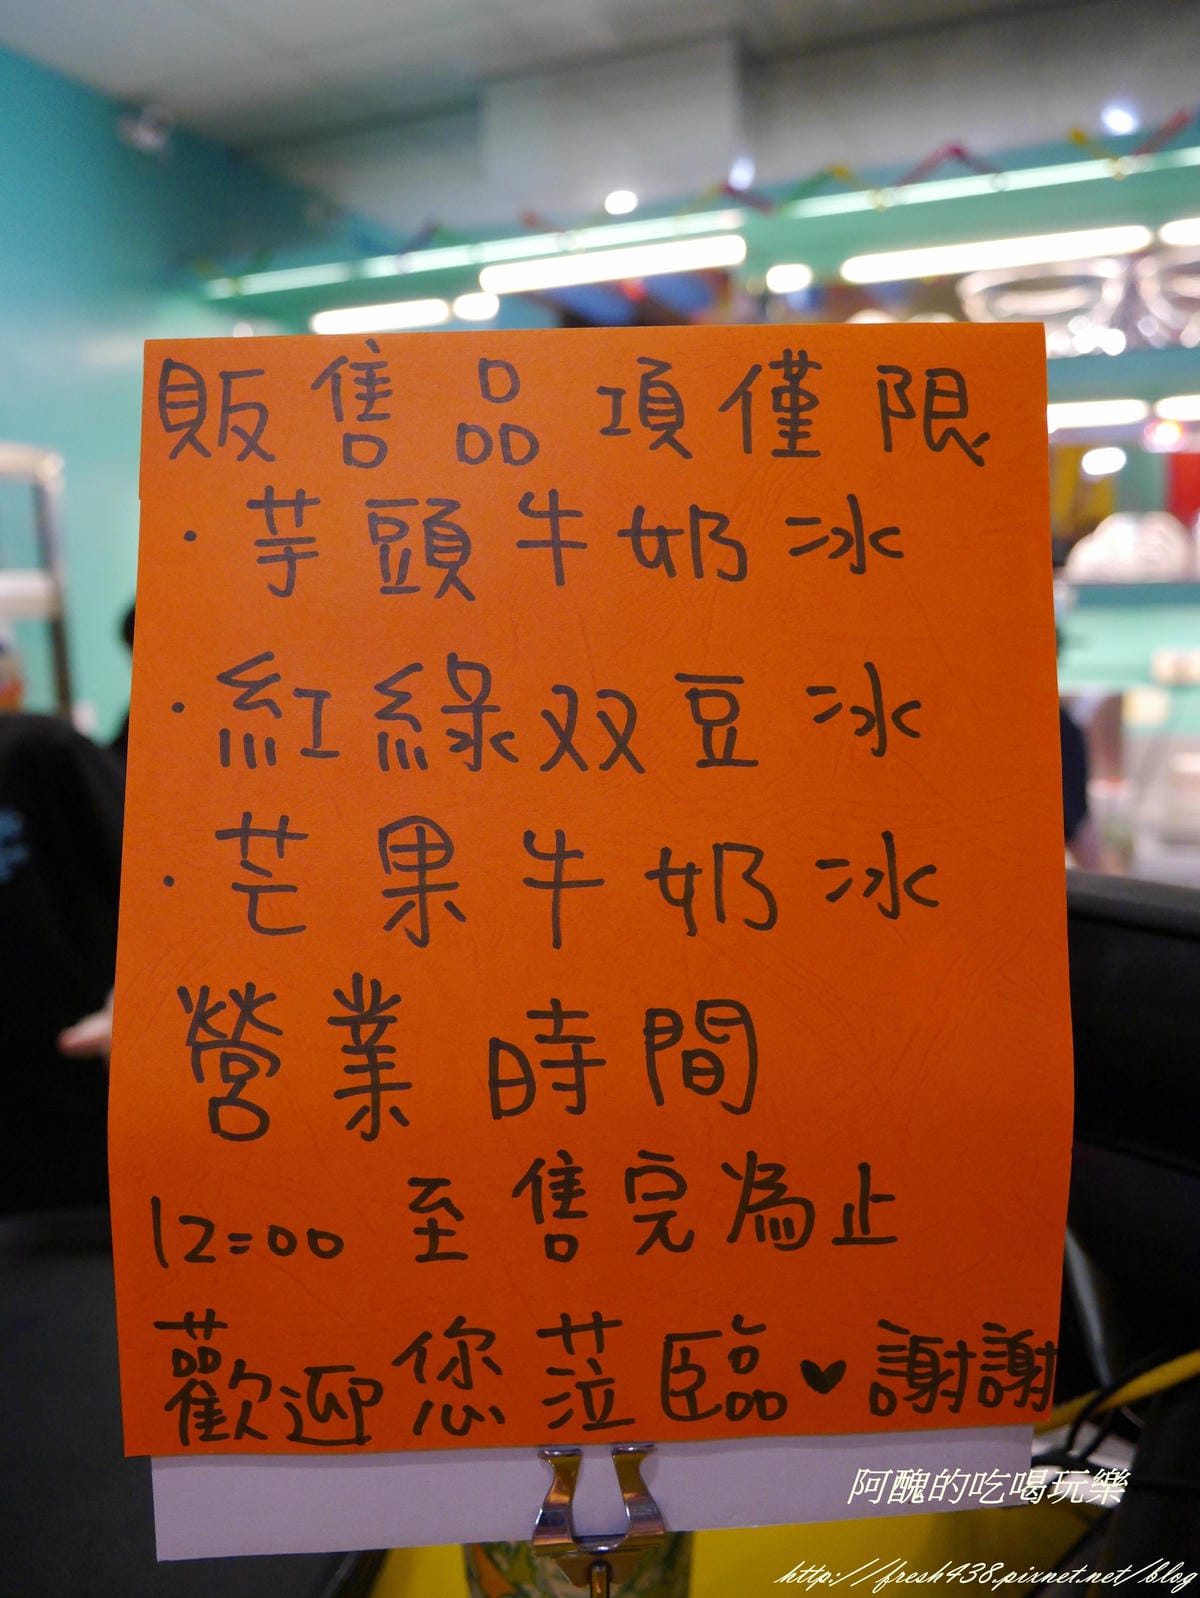 販售品項僅限
·芋頭牛奶冰
·紅綠双豆冰
·芒果牛奶冰
營業時間
12:00 至售完為止
歡迎您蒞臨♥謝謝
阿醜的吃喝玩樂
http://fresh438.pixnet.net/blog